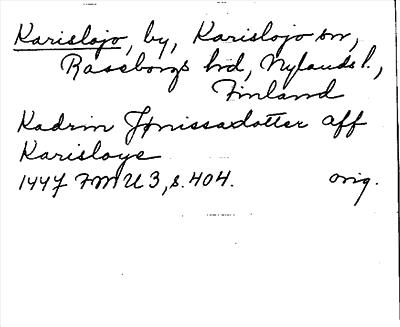 Karislojo, by, Karislojo sn,
Raseborgs hd, Nylands l.,
Finland
Kadrin Jönissadotter aff
Karisloye
1447 FMU 3, s. 404. orig.